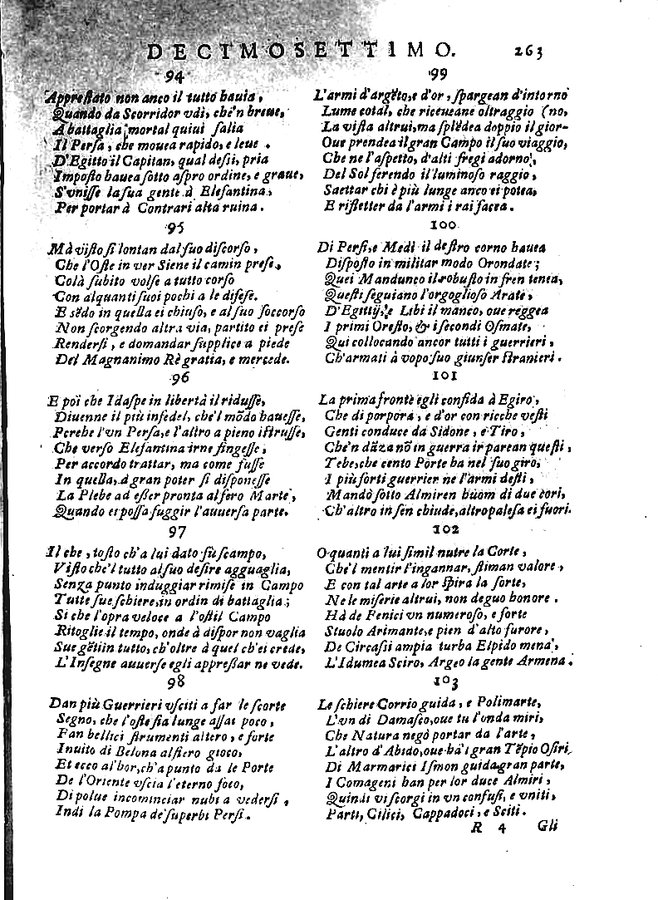 DECIMOSETTIMO. 263
94
Appreſtato non anco il tutto hauia,
Quando da Scorridor vdì, che'n breue,
A battaglia mortal quiui ſalia
Il Perſa, che mouea rapido, e leue.
D'Egitto il Capitan, qual deſii, pria
Impoſto hauea ſotto aſpro ordine, e graue,
S'vniſſe la ſua gente à Elefantina,
Per portar à Contrari alta ruina.
95
Mà viſto ſi lontan dal ſuo diſcorſo,
Che l'Oſte in ver Siene il camin preſe,
Colà ſubito volſe a tutto corſo
Con alquanti ſuoi pochi a le difeſe.
E sẽdo in quella ei chiuſo, e al ſuo ſoccorſo
Non ſcorgendo altra via, partito ei preſe
Renderſi, e domandar ſupplice a piede
Del Magnanimo Rè gratia, e mercede.
96
E poi che Idaſpe in libertà il riduſſe,
Diuenne il più infedel, che'l mõdo haueſſe,
Perche l'vn Perſa, e l'altro a pieno iſtruſſe,
Che verſo Elefantina irne fingeſſe,
Per accordo trattar, ma come fuſſe
In quella, d gran poter ſi diſponeſſe
La Plebe ad eſſer pronta al fero Marte,
Quando ei poſſa fuggir l'auuerſa parte.
97
Il che, toſto ch'a lui dato fù ſcampo,
Viſto che'l tutto al ſuo deſire agguaglia,
Senza punto induggiar rimiſe in Campo
Tutte ſue ſchiere, in ordin di battaglia;
Si che l'opra veloce a l'oſtil Campo
Ritoglie il tempo, onde à diſpor non vaglia
Sue gẽti in tutto, ch'oltre à quel ch'ei crede,
L'Inſegne auuerſe egli appreſſar ne vede.
98
Dan più Guerrieri vſciti a far le ſcorte
Segno, che l'oſte ſia lunge aſſai poco,
Fan bellici ſtrumenti altero, e forte
Inuito di Belona al fiero gioco,
Et ecco al'hor, ch'a punto da le Porte
De l'Oriente vſcia l'eterno foco,
Di polue incominciar nubi a vederſi,
Indi la Pompa de ſuperbi Perſi.
99
L'armi d'argẽto, e d'or, ſpargean d'intorno
Lume cotal, che riceueane oltraggio (no,
La viſta altrui, ma ſplẽdea doppio il gior-
Oue prendea il gran Campo il ſuo viaggio,
Che ne l'aſpetto, d'alti fregi adorno,
Del Sol ferendo il luminoſo raggio,
Saettar chi è più lunge anco ei potea,
E rifletter da l'armi i rai facea.
100
Di Perſi, e Medi il deſtro corno hauea
Diſpoſto in militar modo Orondate;
Quei Mandunco il robuſto in fren tenea,
Queſti ſeguiano l'orgoglioſo Arate,
D'Egittij, e Libi il manco, oue reggea
I primi Oreſto, & i ſecondi Oſmate,
Qui collocando ancor tutti i guerrieri,
Ch'armati à vopo ſuo giunſer ſtranieri.
101
La prima fronte egli confida à Egiro,
Che di porpora, e d'or con ricche veſti
Genti conduce da Sidone, e Tiro,
Che'n dãza nõ in guerra ir parean queſti,
Tebe, che cento Porte ha nel ſuo giro,
I più forti guerrier ne l'armi deſti,
Mandò ſotto Almiren huom di due cori,
Ch'altro in ſen chiude, altro paleſa ei fuori.
102
O quanti a lui ſimil nutre la Corte,
Che'l mentir l'ingannar, ſtiman valore,
E con tal arte a lor ſpira la ſorte,
Ne le miſerie altrui, non deguo honore.
Hà de Fenici vn numeroſo, e forte
Stuolo Arimante, e pien d'alto furore,
De Circaſſi ampia turba Elpido mena,
L'Idumea Sciro, Argeo la gente Armena.
103
Le ſchiere Corrio guida, e Polimarte,
L'vn di Damaſco, oue tu l'onda miri,
Che Natura negò portar da l'arte,
L'altro d'Abido, oue hà i gran Tẽpio Oſiri,
Di Marmarici Iſmon guida gran parte,
I Comageni han per lor duce Almiri,
Quindi vi ſcorgi in vn confuſi, e vniti,
Parti, Cilici, Cappadoci, e Sciti.
R 4 Gli